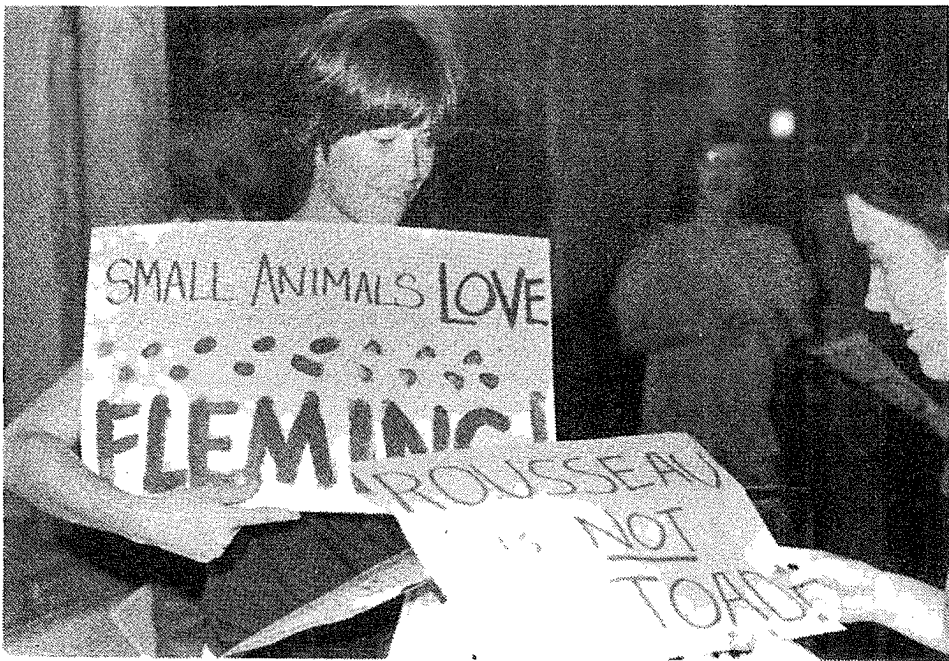 SMALL ANIMALS LOVE
FLEMING!
ROUSSEAU
NOT